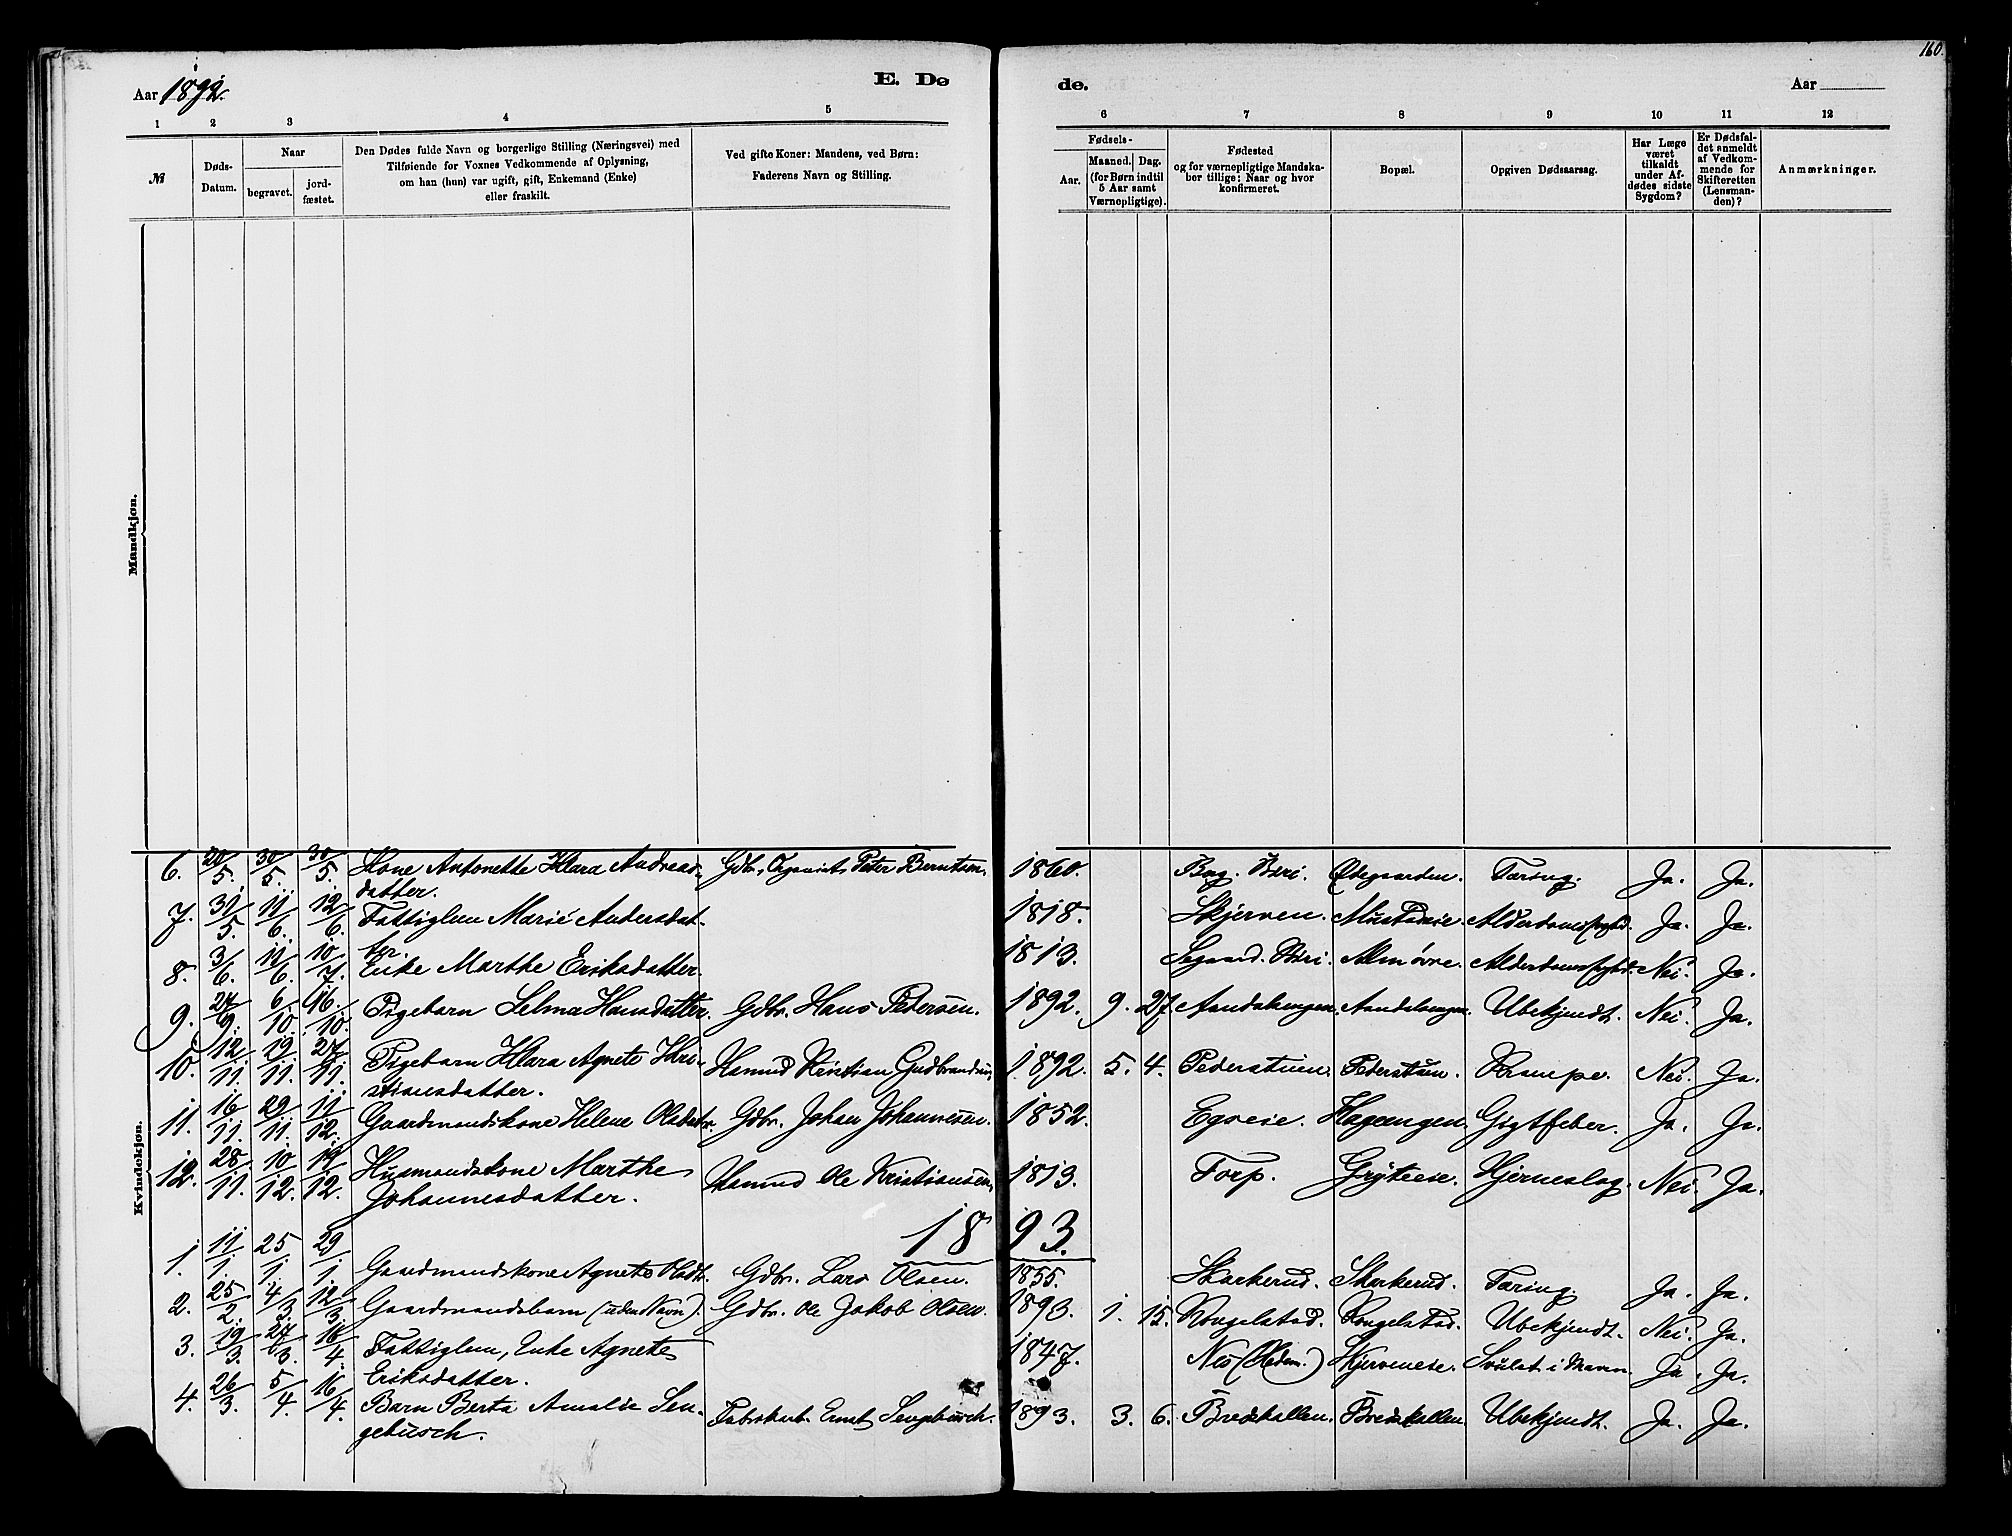 160.
Aar 1892.
E. Dø
de.
Aar
1 2 3 4 5
6 7 8 9 10 11 12
№
Døds-Datum.
Naar
begravet.
jord-fæstet.
Den Dødes fulde Navn og borgerlige Stilling (Næringsvei) med
Tilføiende for Voxnes Vedkommende af Oplysning,
om han (hun) var ugift, gift, Enkemand (Enke)
eller fraskilt.
Ved gifte Koner: Mandens, ved Børn:
Faderens Navn og Stilling.
Fødsels-
Aar.
Maaned. Dag.
(for Børn indtil
5 Aar samt
Værnepligtige).
Fødested
og for værnepligtige Mandska-
ber tillige: Naar og hvor
konfirmeret.
Bopæl.
Opgiven Dødsaarsag.
Har Læge
været
tilkaldt
under Af-
dødes sidste
Sygdom?
Er Dødsfal-
det anmeldt
af Vedkom-
mende for
Skifteretten
(Lensman-
den)?
Anmærkninger.
Mandkjøn.
Kvindekjøn.
6. 20/5. 30/5. 30/5. Kone Antonette Klara Andreas- Gdbr., Organist Peter Berntsen. 1860. Bag. Biri. Ødegaarden. Tæring. Ja. Ja.
datter.
7. 31/5. 11/6. 12/6. Fattiglem Marie Andersdat- 1818. Skjerven. Alderdomssygd. Ja. Ja.
ter.
8. 3/6. 11/6. 10/7. Enke Marthe Eriksdatter. 1813. Biri. Alderdomssygd. Nei. Ja.
9. 27/9. 6/10. 16/10. Pigebarn Selma Hansdatter. Gdbr. Hans Pedersen. 1892. 9. 27. Aandalsengen. Aandalsengen. Ubekjendt. Nei. Ja.
10. 12/11. 19/11. 27/11. Pigebarn Klara Agnete Kri- Hsmnd Kristian Gudbrandsen 1892. 5. 4. Pederstuen. Pederstuen. Krampe. Nei. Ja.
stiansdatter.
11. 16/11. 29/11. 11/12. Gaardmandskone Helene Olsdatr. Gdbr. Johan Johannesen. 1852. Egseie. Hagaengen. Gigtfeber. Ja. Ja.
12. 28/11. 10/12. 19/12. Husmandskone Marthe Hsmnd Ole Kristiansen. 1813. Torp. Grýteeie. Hjerneslag. Nei. Ja.
Johannesdatter.
1893.
1. 11/1. 25/1. 29/1. Gaardmandskone Agnete Olsdtr. Gdbr. Lars Olsen. 1855. Skarkerud. Skarkerud. Tæring. Ja. Ja.
2. 25/2. 4/3. 12/3. Gaardmandsbarn (uden Navn). Gdbr. Ole Jakob Olsen. 1893. 1. 15. Kongelstad. Kongelstad. Ubekjendt. Nei. Ja.
3. 19/3. 27/3. 16/4. Fattiglem, Enke Agnete 1847. Nes (Hedm.) Skjerveneie. Svulst i Maven Ja. Ja.
Eriksdatter.
4. 26/3. 5/4. 16/4. Barn Berta Amalie Sen- Fabrikarb. Ernst Sengebusch. 1893. 3. 6. Bredskallen. Bredskallen. Ubekjendt. Ja. Ja.
gebusch.